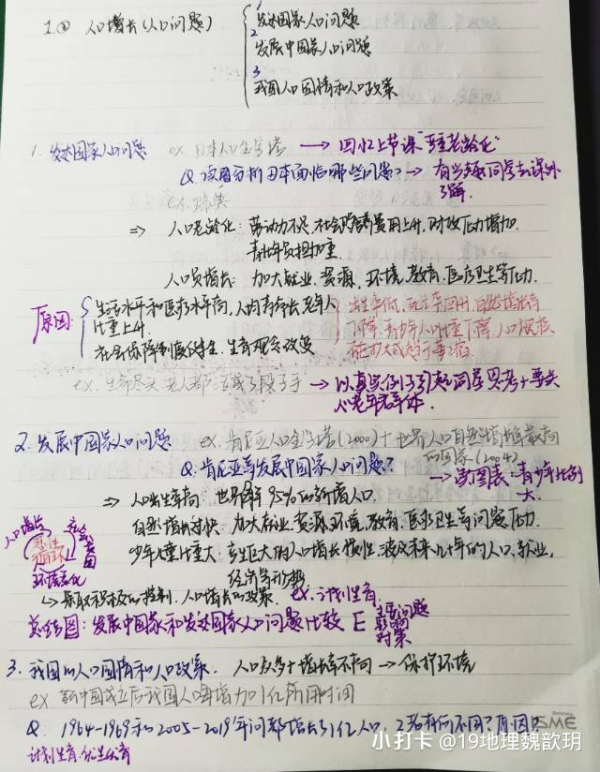 1.② 人口增长(人口问题)
1 发达国家人口问题
2 发展中国家人口问题
3 我国人口国情和人口政策
1. 发达国家人口问题 ex. 日本人口金字塔 → 回忆上节课" 老龄化"
Q. 读图分析日本面临哪些问题? → 有兴趣同学去课外
了解.
⇒ 人口老龄化: 劳动力不足,社会 费用上升,财政压力增加.
青壮年负担加重.
人口负增长: 加大就业、资源、环境、教育、医疗卫生等压力.
原因: 生活水平和医疗水平高,人均寿命长,老年人
比重上升.
社会保障制度健全、生育观念改变
出生率低,死亡率回升,自然增长率
下降,青少年人口比重下降,人口
ex. 生命尽头,老人都 → 以真实例子引起同学思考+要关
心老年群体.
2. 发展中国家人口问题 ex. 肯尼亚人口金字塔(2000)+世界人口自然增长率最高
的国家(2004)
Q. 肯尼亚等发展中国家人口问题? → 学图表: 青少年比例
大.
⇒ 人口出生率高 世界每年95%的新增人口.
自然增长过快: 加大就业、资源、环境、教育、医疗卫生等问题压力.
少年儿童比重大 产生巨大的人口增长惯性,波及未来几十年的人口、就业、
经济等形势
人口增长
恶性循环
环境恶化
社会贫困
↳ 采取积极的控制人口增长的政策. ex. 计划生育.
总结图: 发展中国家和发达国家人口问题比较 主要问题
对策
3. 我国的人口国情和人口政策. 人口众多+增长率不高 → 保护环境
ex 新中国成立后我国人口每增加1亿所用时间
Q. 1964-1969和2005-2019年间都增长了1亿人口, 2者有何不同?原因?
计划生育、优生优育
SME
小打卡 @19地理魏歆玥